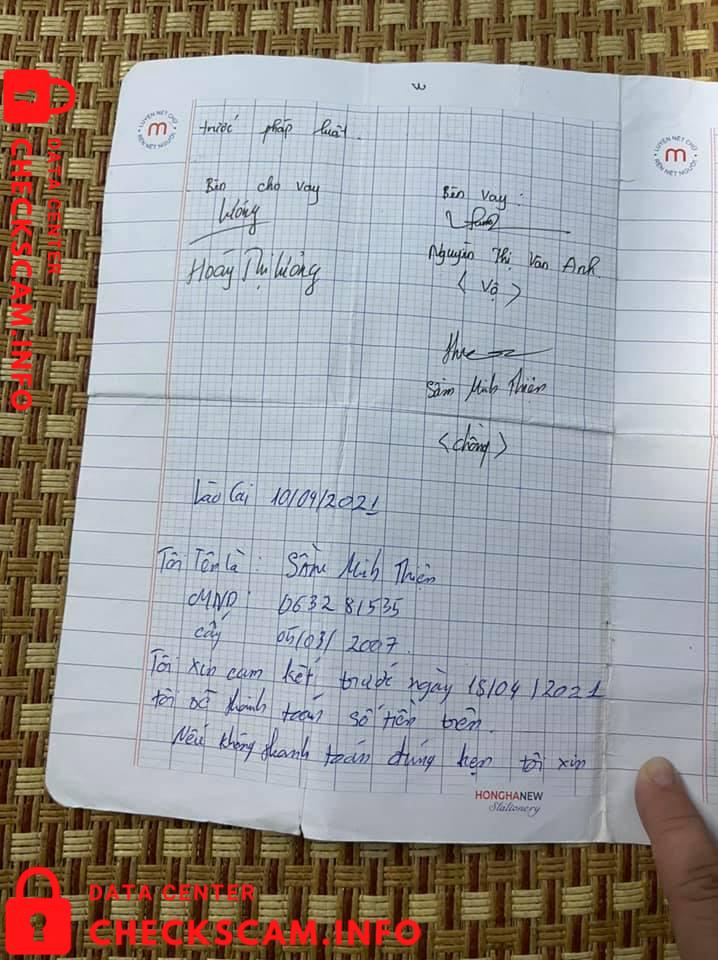 LUYỆN NÉT CHỮ
RÈN NẾT NGƯỜI
m
LUYỆN NÉT CHỮ
RÈN NẾT NGƯỜI
m
trước pháp luật.
Bên cho vay
Bên vay:
Hoàng Thị Hương
Nguyễn Thị Vân Anh
< Vợ >
Sầm Minh Thiện
< chồng >
Lào Cai 10/04/2021
Tôi Tên là: Sầm Minh Thiện
CMND: 063281535
cấp 05/03/2007.
Tôi xin cam kết trước ngày 15/04/2021
tôi sẽ thanh toán số tiền trên.
Nếu không thanh toán đúng hẹn tôi xin
HONGHANEW
Stationery
DATA CENTER
CHECKSCAM.INFO
DATA CENTER
CHECKSCAM.INFO